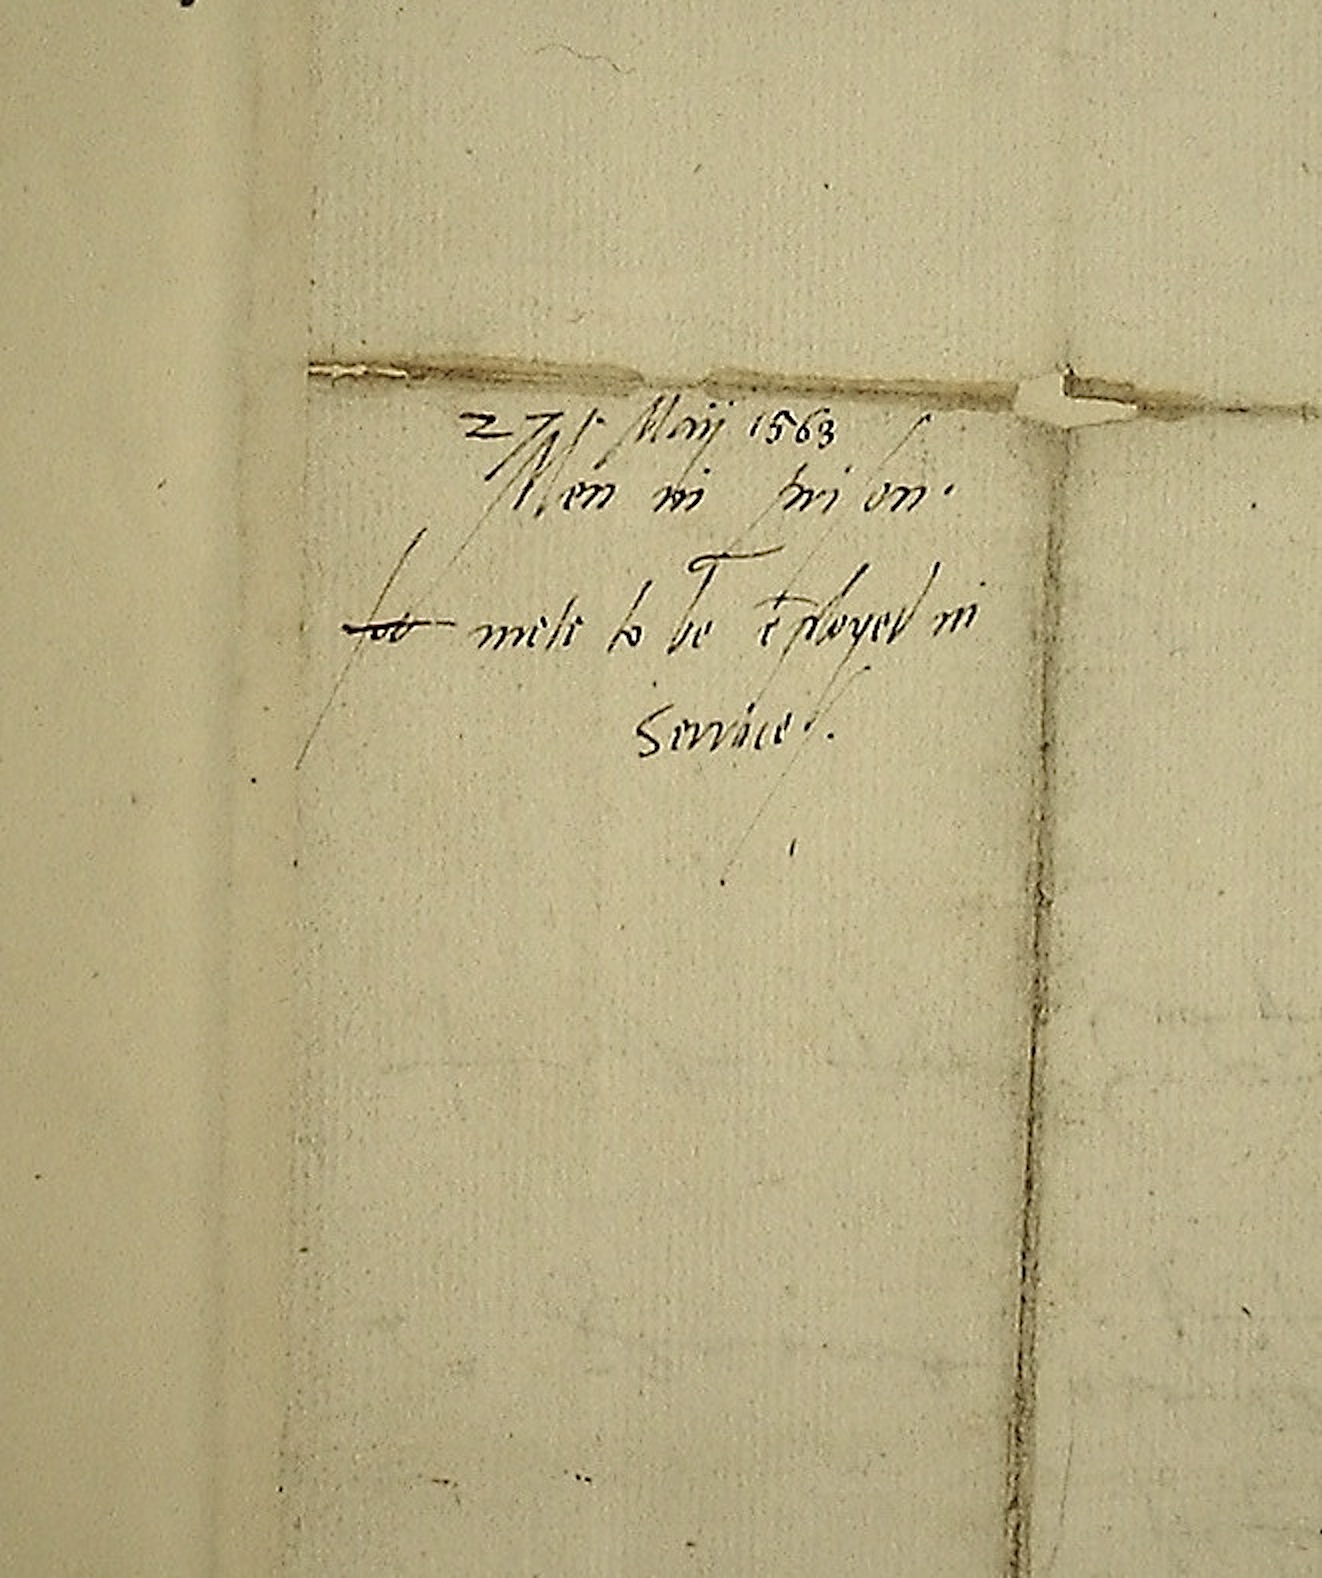 27 Maij 1563
Men in prison.
for mete to be ēployed in
Service.